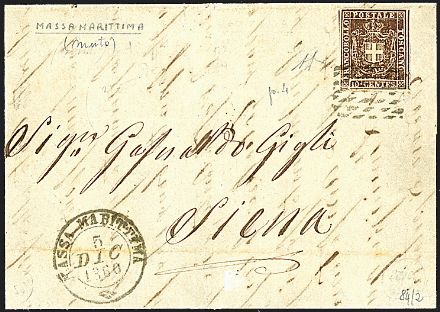 MASSA MARITTIMA
(muto)
FRANCOBOLLO
POSTALE
TOSCANO
10 CENTES
11
p. 4
Sigr Gasualdo Gigli
Siena
MASSA MARITTIMA
5
DIC
1860
84/2